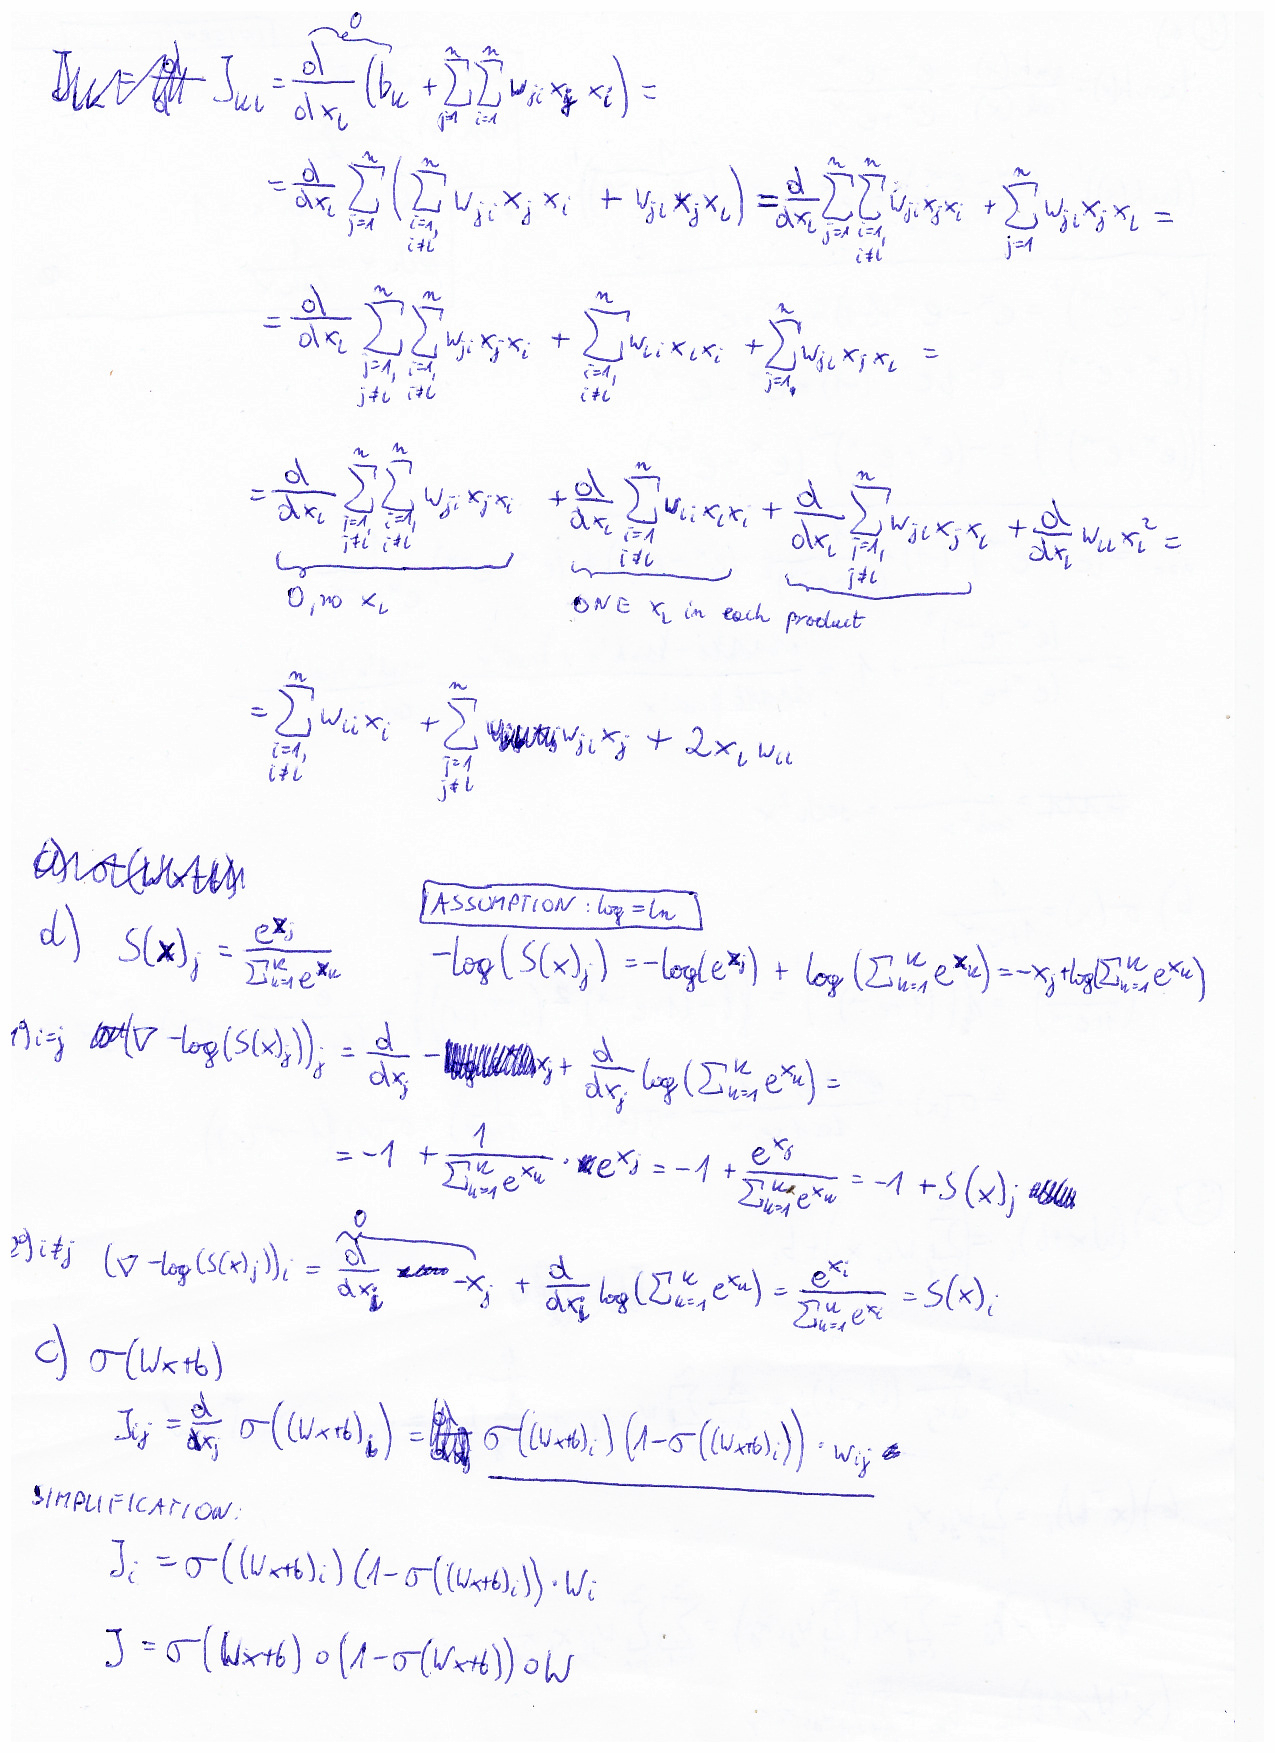 J_{kl} = \frac{d}{dx_l} \overbrace{(b_k}^{0} + \sum_{j=1}^{n} \sum_{i=1}^{n} w_{ji} x_j x_i) =
= \frac{d}{dx_l} \sum_{j=1}^{n} ( \sum_{i=1, i≠l}^{n} w_{ji} x_j x_i + w_{jl} x_j x_l ) = \frac{d}{dx_l} \sum_{j=1}^{n} \sum_{i=1, i≠l}^{n} w_{ji} x_j x_i + \sum_{j=1}^{n} w_{jl} x_j x_l =
= \frac{d}{dx_l} \sum_{j=1, j≠l}^{n} \sum_{i=1, i≠l}^{n} w_{ji} x_j x_i + \sum_{i=1, i≠l}^{n} w_{li} x_l x_i + \sum_{j=1,}^{n} w_{jl} x_j x_l =
= \frac{d}{dx_l} \sum_{j=1, j≠l}^{n} \sum_{i=1, i≠l}^{n} w_{ji} x_j x_i + \frac{d}{dx_l} \sum_{i=1, i≠l}^{n} w_{li} x_l x_i + \frac{d}{dx_l} \sum_{j=1, j≠l}^{n} w_{jl} x_j x_l + \frac{d}{dx_l} w_{ll} x_l^2 =
0, no x_l ONE x_l in each product
= \sum_{i=1, i≠l}^{n} w_{li} x_i + \sum_{j=1, j≠l}^{n} w_{jl} x_j + 2 x_l w_{ll}
ASSUMPTION: log = ln
d) S(x)_j = \frac{e^{x_j}}{\sum_{k=1}^{K} e^{x_k}} -log(S(x)_j) = -log(e^{x_j}) + log(\sum_{k=1}^{K} e^{x_k}) = -x_j + log(\sum_{k=1}^{K} e^{x_k})
1°) i=j (∇ -log(S(x)_j))_j = \frac{d}{dx_j} - x_j + \frac{d}{dx_j} log(\sum_{k=1}^{K} e^{x_k}) =
= -1 + \frac{1}{\sum_{k=1}^{K} e^{x_k}} · e^{x_j} = -1 + \frac{e^{x_j}}{\sum_{k=1}^{K} e^{x_k}} = -1 + S(x)_j
2°) i≠j (∇ -log(S(x)_j))_i = \overbrace{\frac{d}{dx_i} -x_j}^{0} + \frac{d}{dx_i} log(\sum_{k=1}^{K} e^{x_k}) = \frac{e^{x_i}}{\sum_{k=1}^{K} e^{x_i}} = S(x)_i
c) σ(Wx+b)
J_{ij} = \frac{d}{dx_j} σ((Wx+b)_i) = σ((Wx+b)_i) (1-σ((Wx+b)_i)) · w_{ij}
SIMPLIFICATION:
J_i = σ((Wx+b)_i) (1-σ((Wx+b)_i)) · W_i
J = σ(Wx+b) ∘ (1-σ(Wx+b)) ∘ W